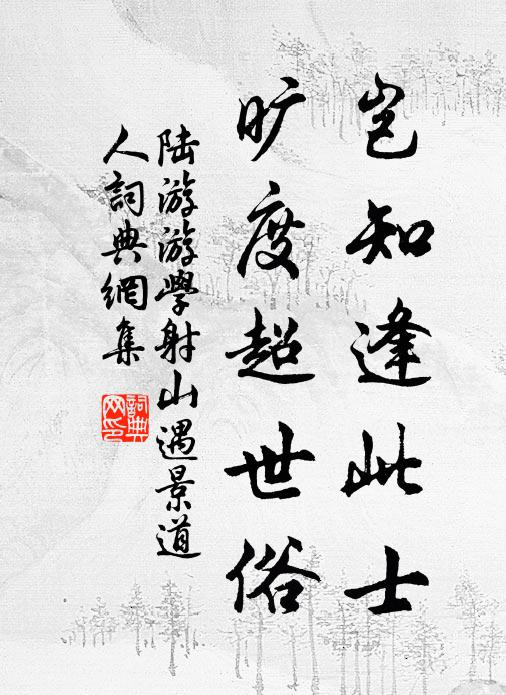 岂知逢此士
旷度超世俗
陆游游學射山遇景道
人詞典網集
詞典
网印